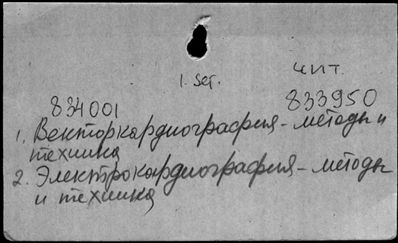 чит.
1. Ser.
834001 833950
1. Векторкардиография - методы и
техника
2. Электрокардиография - методы
и техника